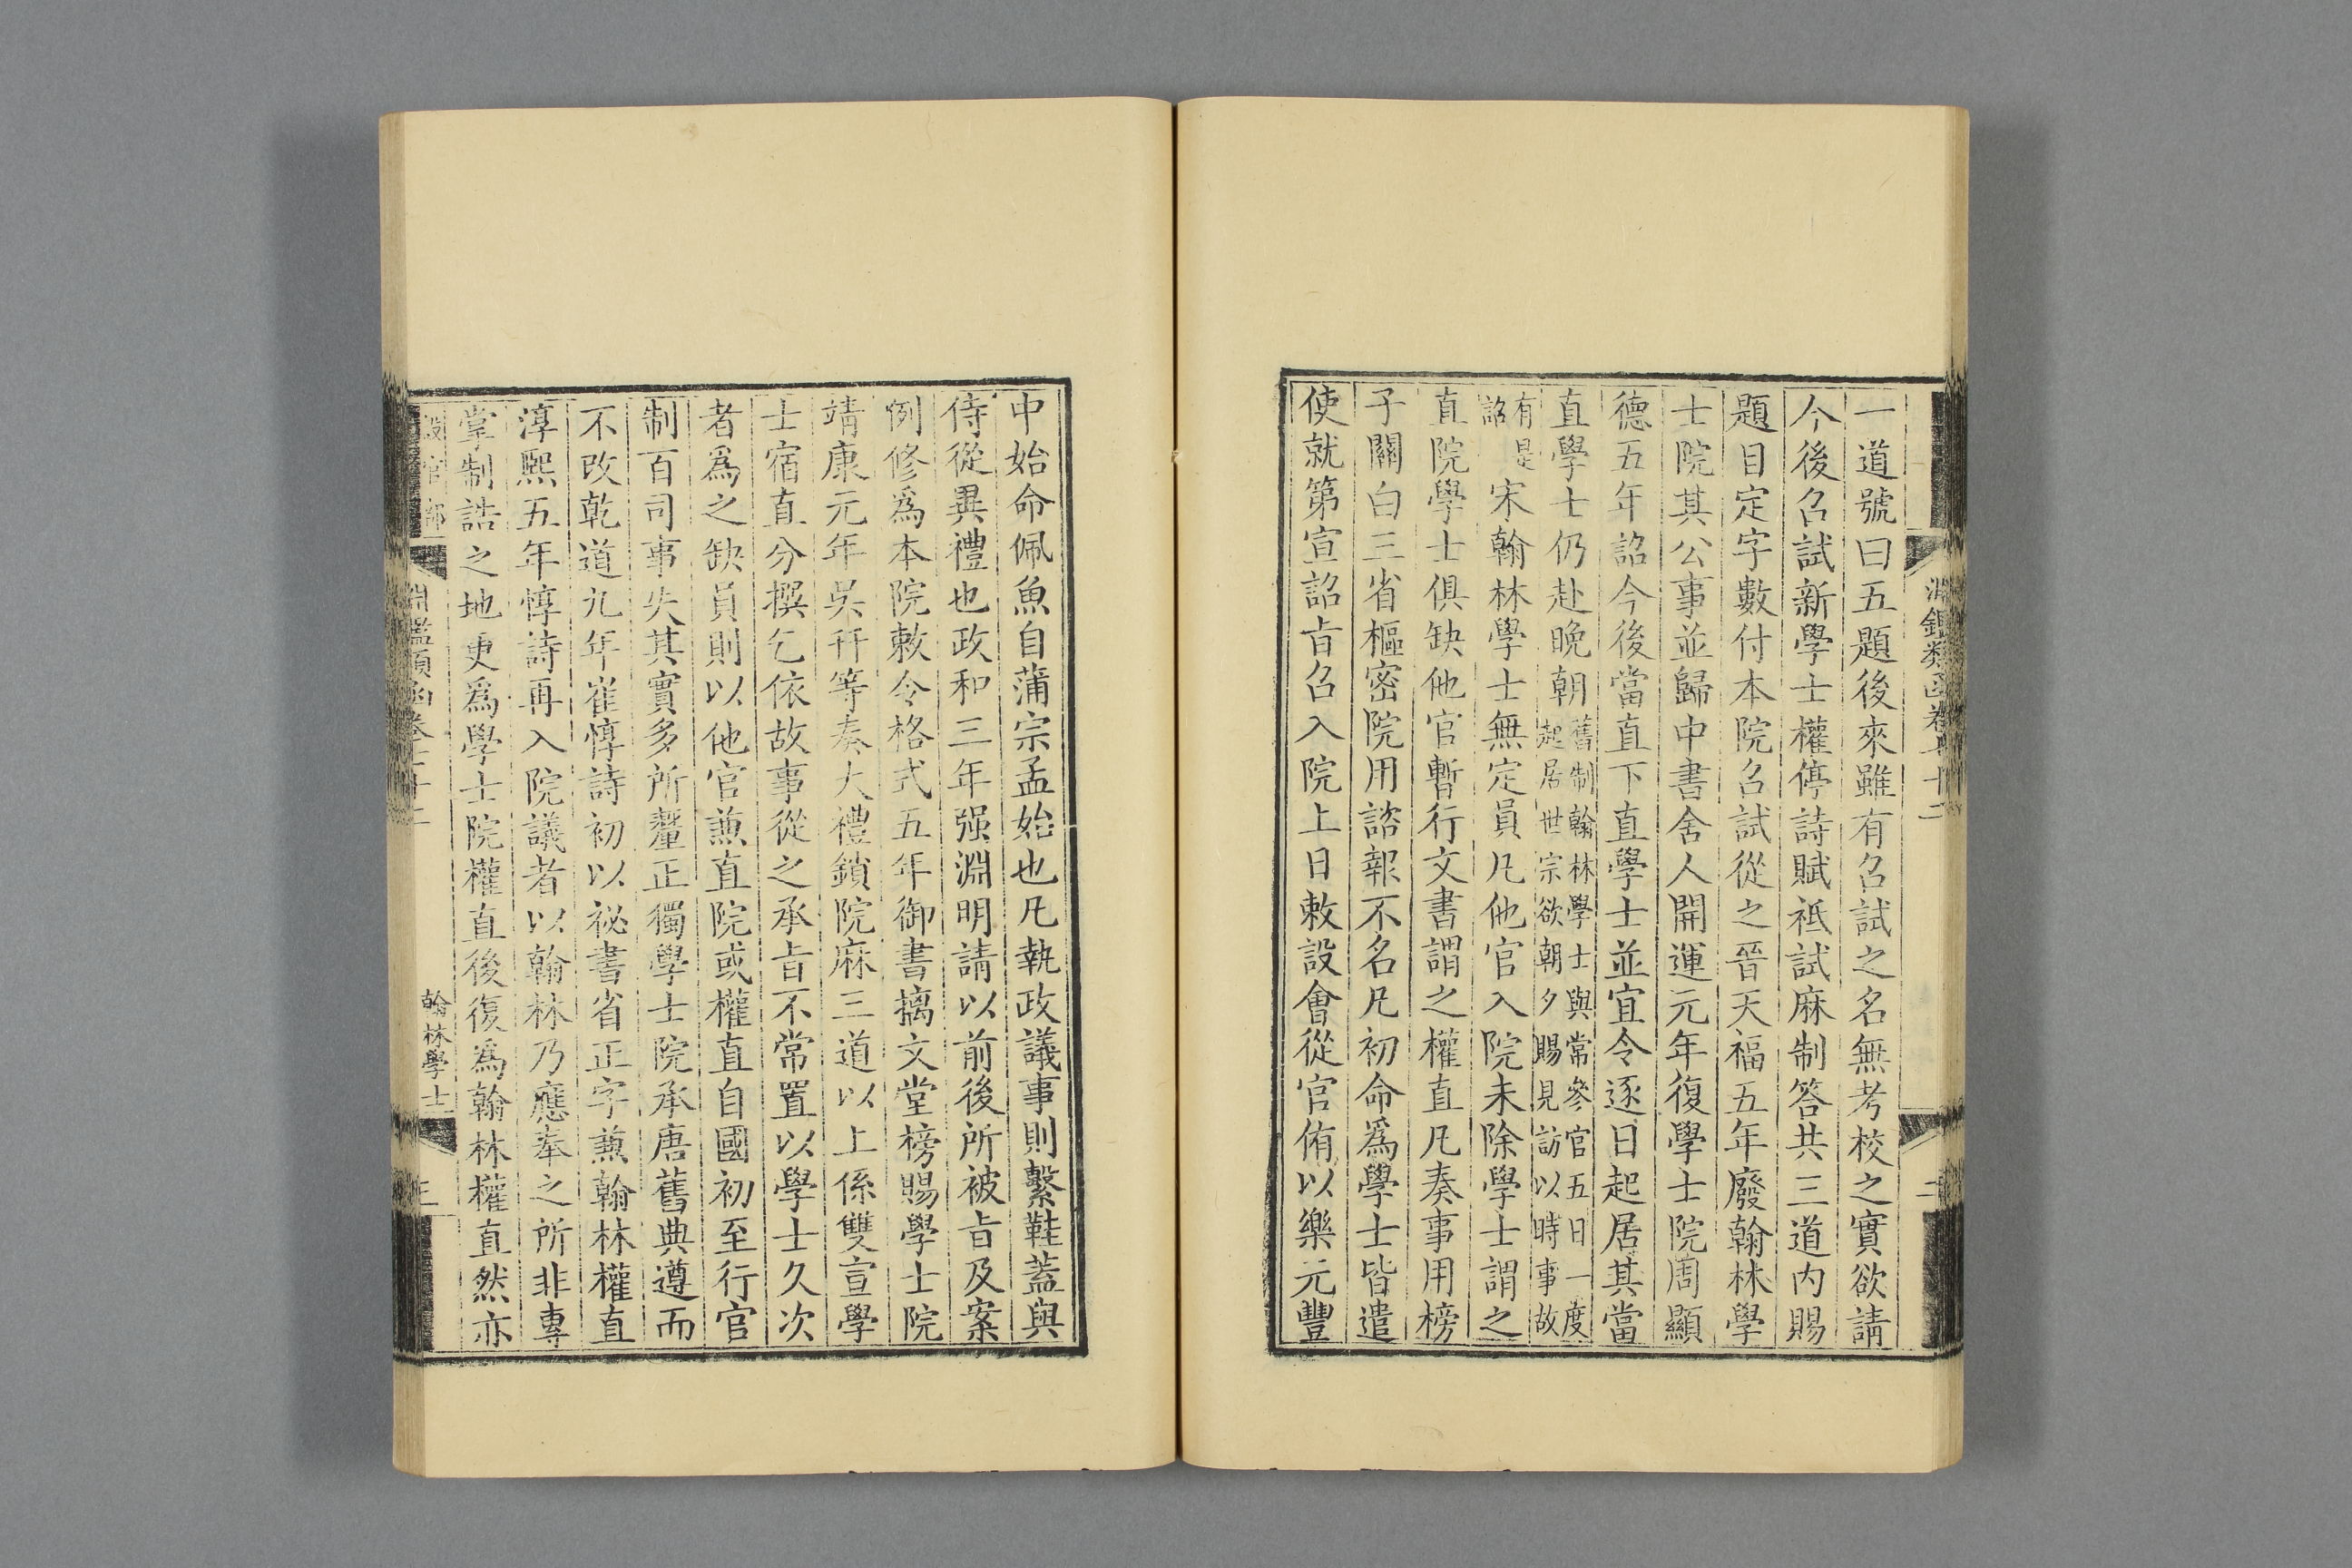 淵鑑類函卷七十二
二
一道號曰五題後來雖有召試之名無考校之實欲請
今後召試新學士權停詩賦祗試麻制答共三道內賜
題目定字數付本院召試從之晉天福五年廢翰林學
士院其公事並歸中書舍人開運元年復學士院周顯
德五年詔今後當直下直學士並宜令逐日起居其當
直學士仍赴晚朝舊制翰林學士與常參官五日一度
起居世宗欲朝夕賜見訪以時事故
有是
詔宋翰林學士無定員凡他官入院未除學士謂之
直院學士俱缺他官暫行文書謂之權直凡奏事用榜
子關白三省樞密院用諮報不名凡初命爲學士皆遣
使就第宣詔旨召入院上日敕設會從官侑以樂元豐
中始命佩魚自蒲宗孟始也凡執政議事則繫鞋蓋與
侍從異禮也政和三年强淵明請以前後所被旨及案
例修爲本院敕令格式五年御書摛文堂榜賜學士院
靖康元年吳幵等奏大禮鎖院麻三道以上係雙宣學
士宿直分撰乞依故事從之承旨不常置以學士久次
者爲之缺員則以他官兼直院或權直自國初至行官
制百司事失其實多所釐正獨學士院承唐舊典遵而
不改乾道九年崔惇詩初以祕書省正字兼翰林權直
淳熙五年惇詩再入院議者以翰林乃應奉之所非專
掌制誥之地更爲學士院權直後復爲翰林權直然亦
設官部
淵鑑類函卷七十二
翰林學士
三